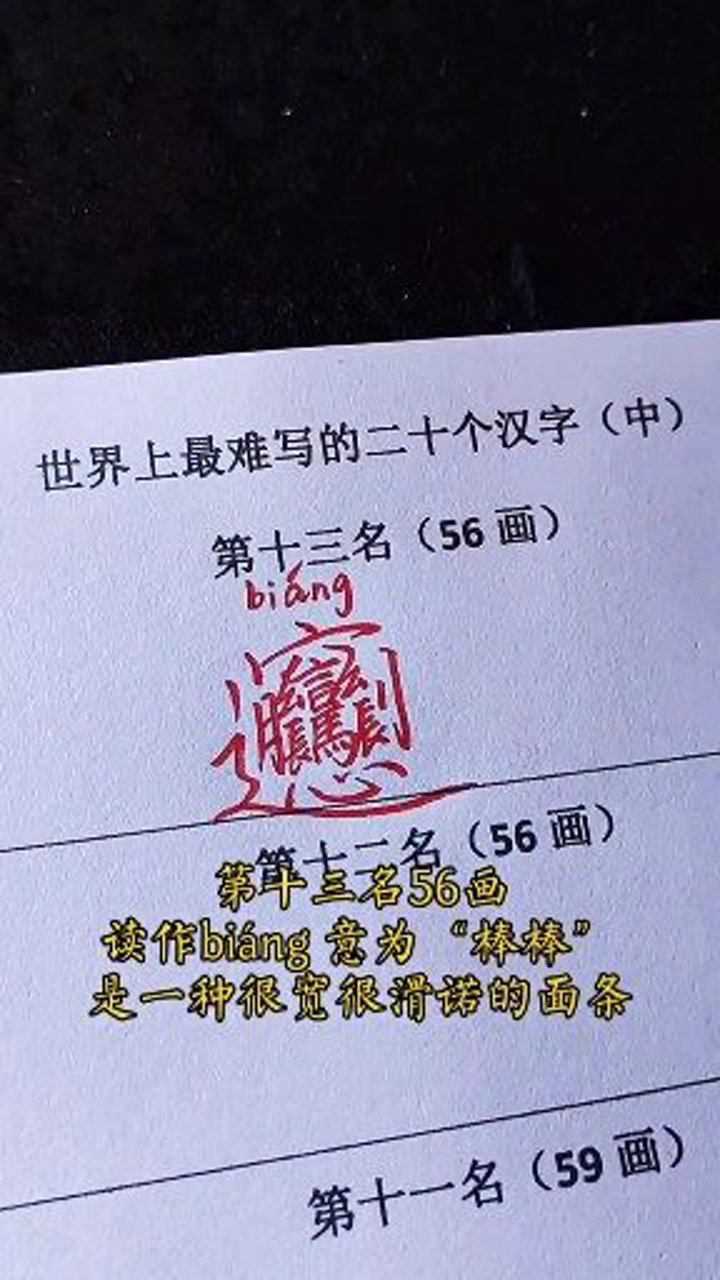 世界上最难写的二十个汉字（中）
第十三名（56 画）
biáng
𰻞
第十二名（56 画）
第十三名56画
读作biáng 意为“棒棒”
是一种很宽很滑诺的面条
第十一名（59 画）